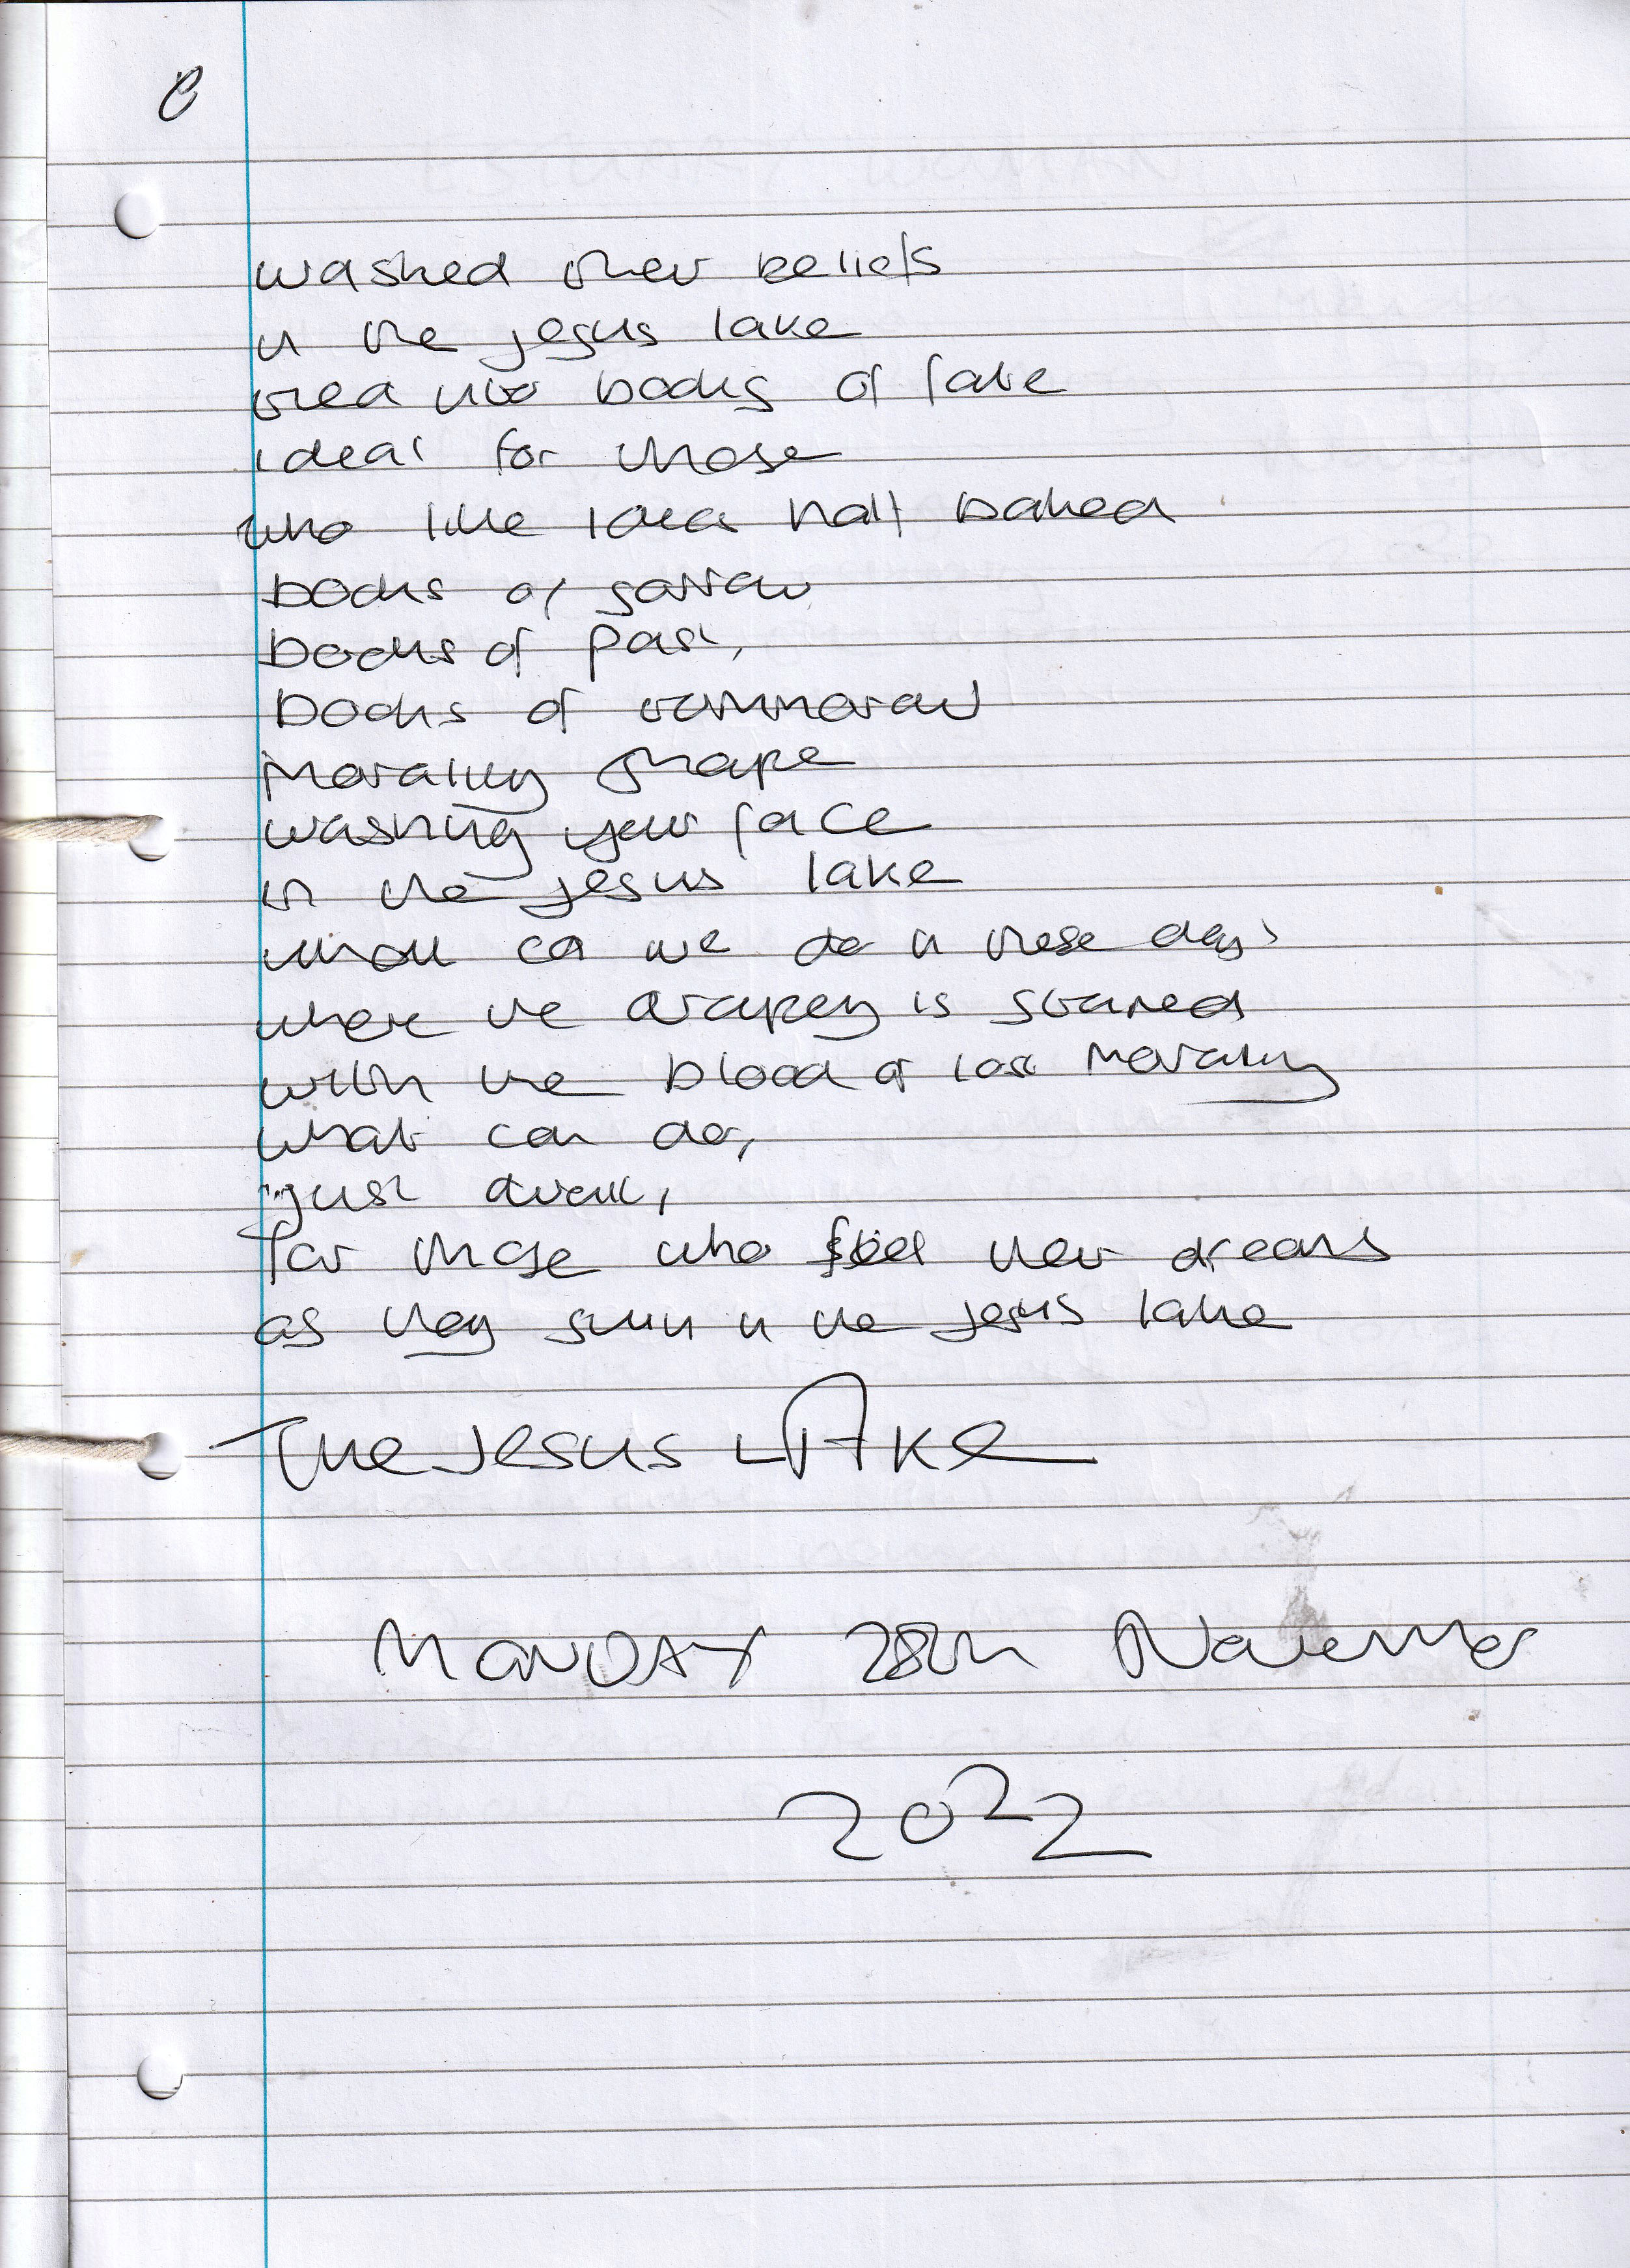 washed their beliefs
in the jesus lake
tread into books of fate
ideal for those
who like ideas half baked
books of sorrow
books of past,
books of tommorow
Morality shape
washing your face
in the jesus lake
what can we do in these days
where the drapery is stained
with the blood of lost Morality
what can do,
just dwell,
for those who feel their dreams
as they swim in the jesus lake
The Jesus LAKe
MONDAY 28th November
2022